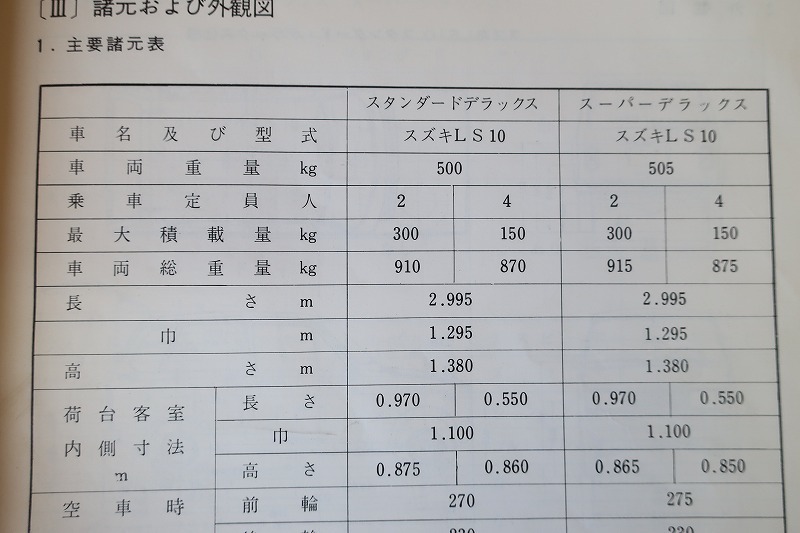 〔Ⅲ〕諸元および外観図
1. 主要諸元表
スタンダードデラックス スーパーデラックス
車名及び型式 スズキLS10 スズキLS10
車両重量 kg 500 505
乗車定員 人 2 4 2 4
最大積載量 kg 300 150 300 150
車両総重量 kg 910 870 915 875
長さ m 2.995 2.995
巾 m 1.295 1.295
高さ m 1.380 1.380
荷台客室内側寸法 m 長さ 0.970 0.550 0.970 0.550
巾 1.100 1.100
高さ 0.875 0.860 0.865 0.850
空車時 前輪 270 275
230 230